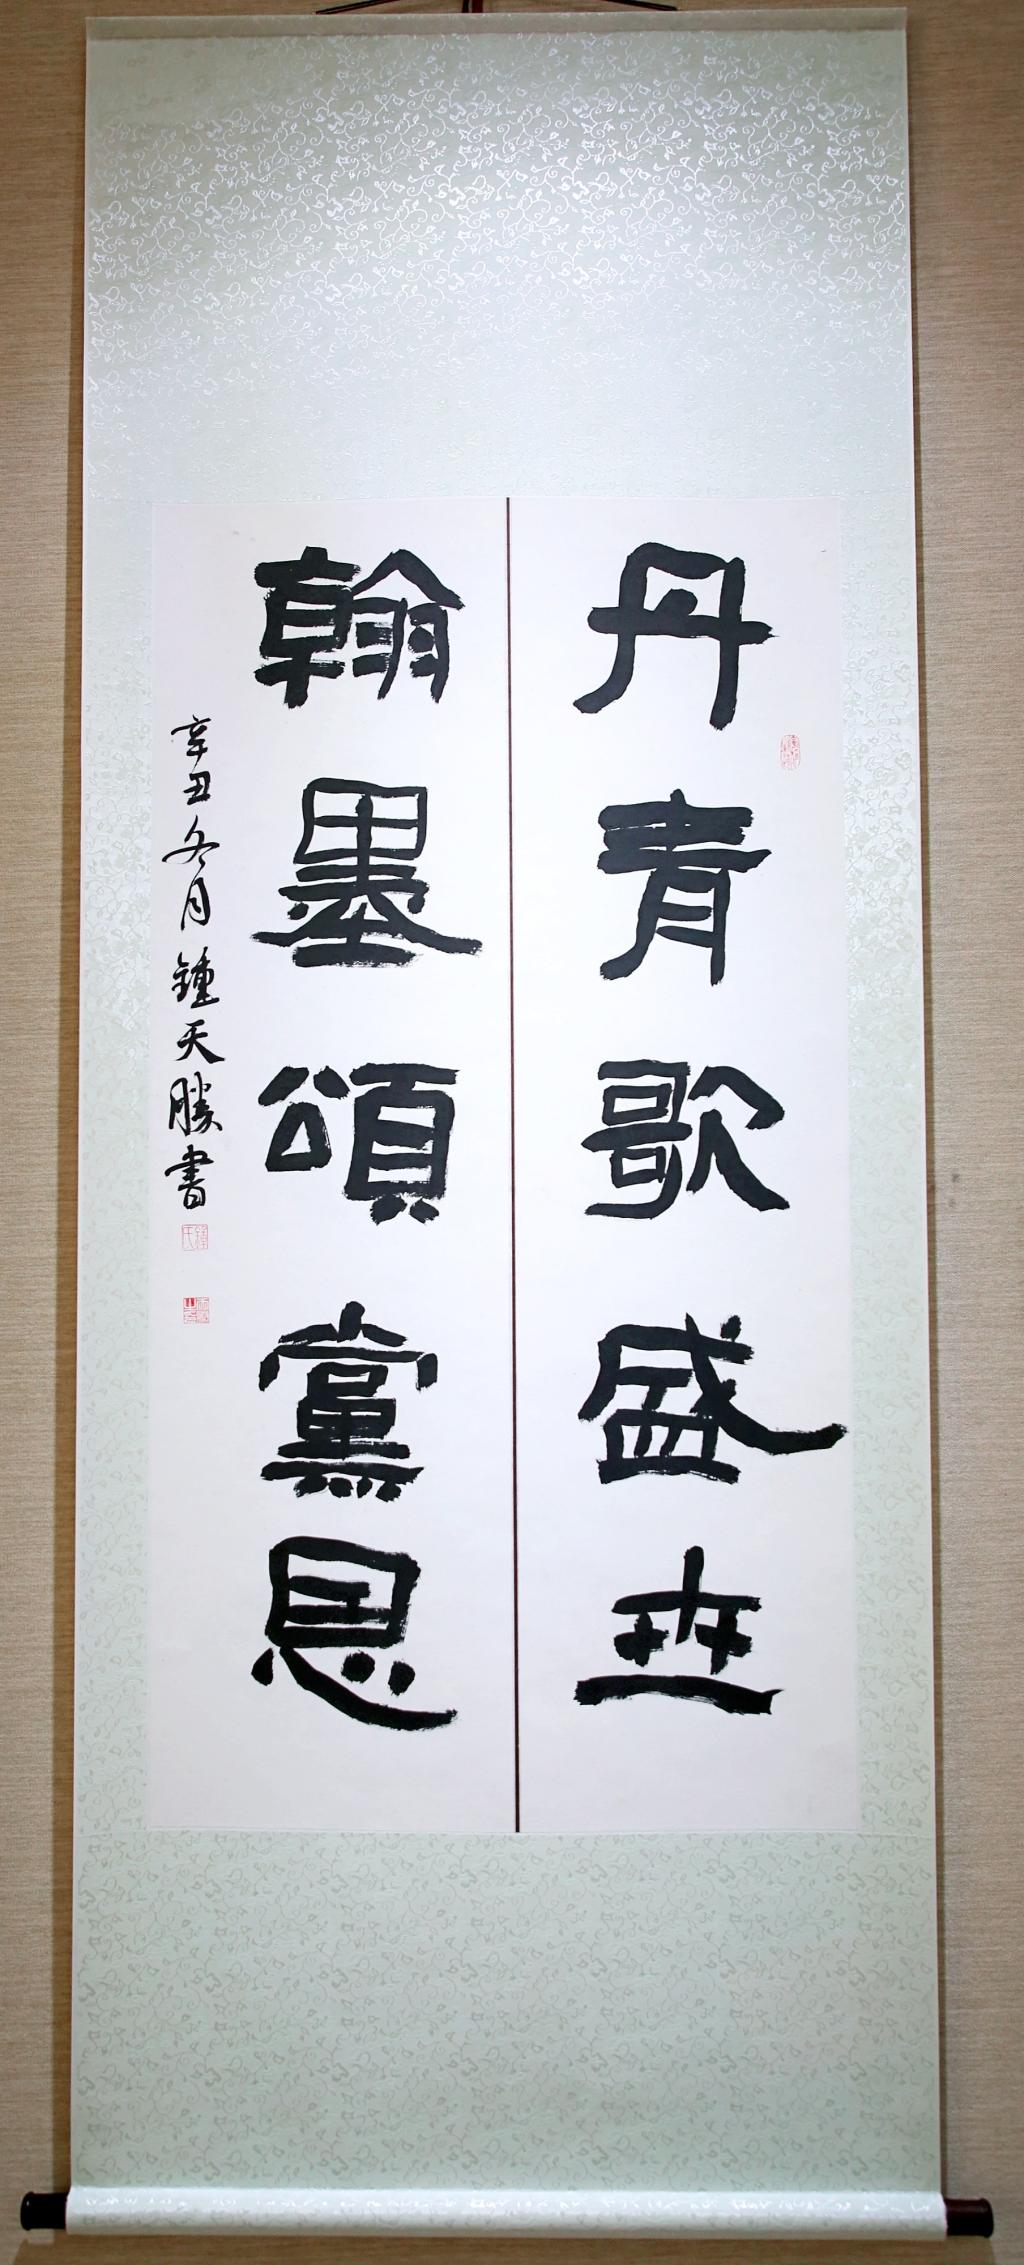 丹青歌盛世
翰墨頌黨恩
辛丑冬月鍾天勝書